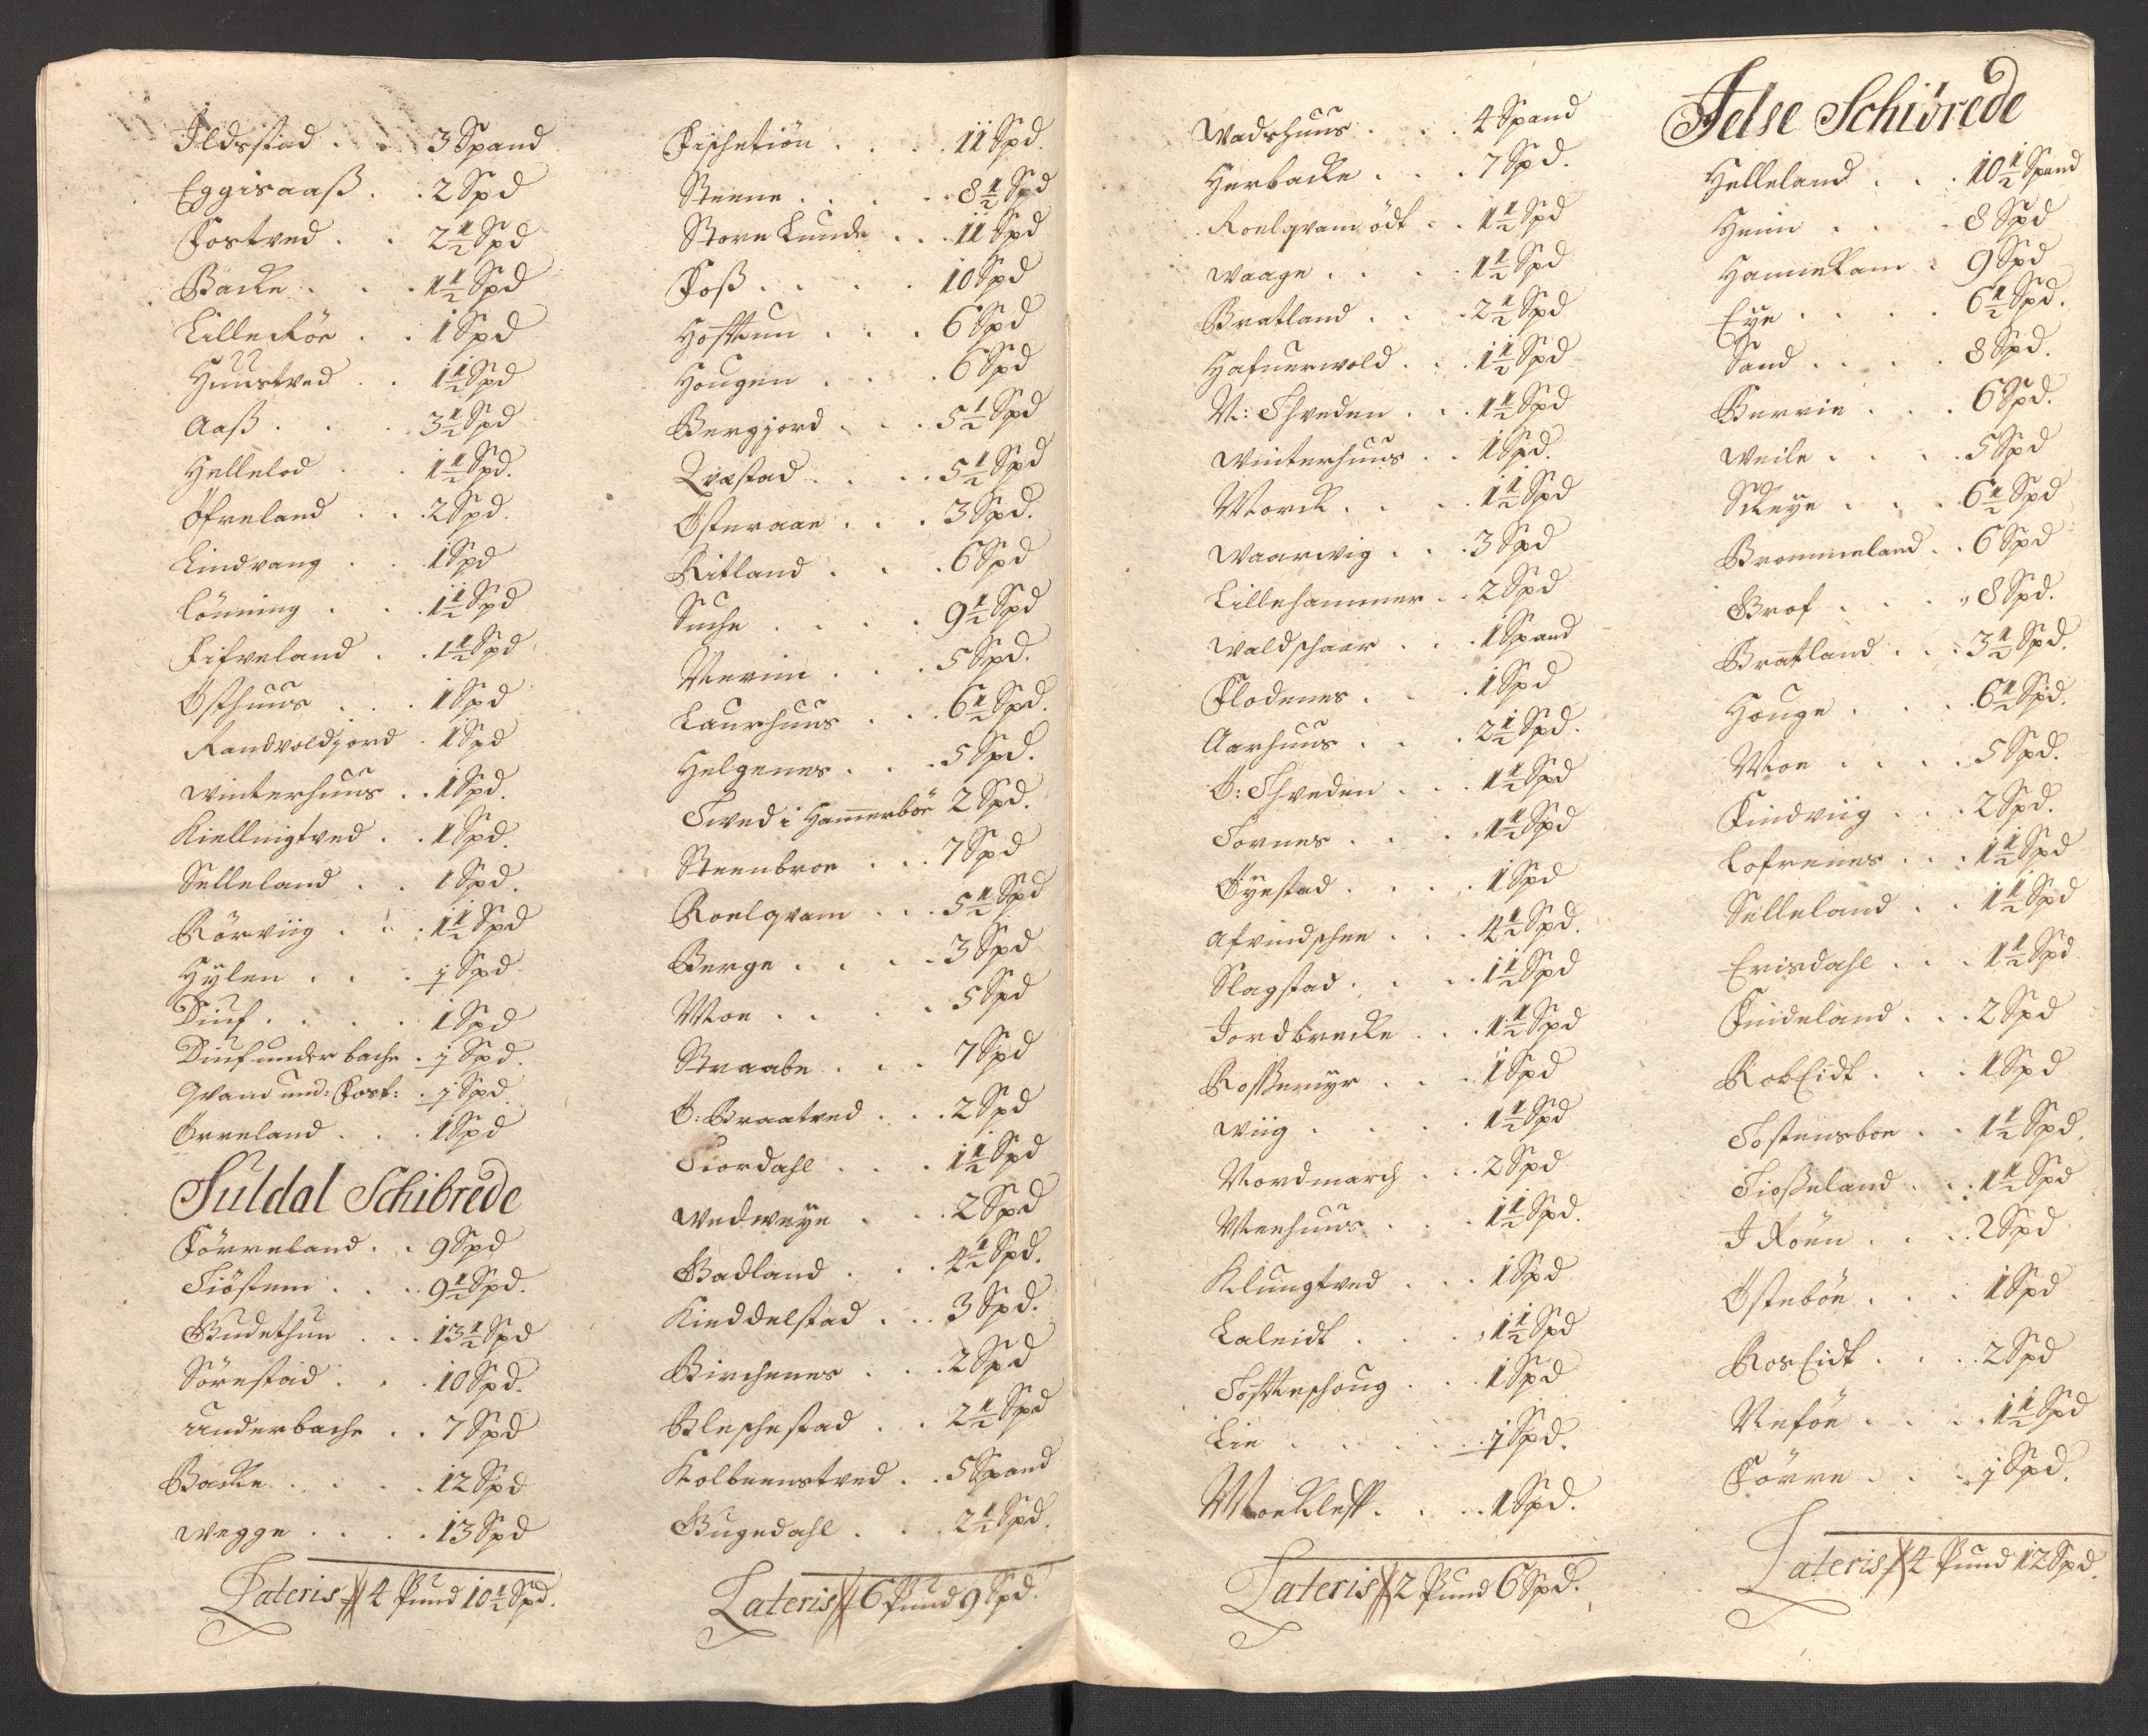 Ildsstad . . 3 Spand
Eggisaaß . . 2 Spd
Fostved . . 2½ Spd
Backe . . . 1½ Spd
Lilleköe . . 1 Spd
Huustved . . 1½ Spd
Aaß . . . 3½ Spd
Hellelod . . 1½ Spd.
Öfreland . . 2 Spd.
Lindvang . . 1 Spd
Lönning . . 1½ Spd
Fifveland . . 1½ Spd
Östhuus . . . 1 Spd
Randvoldjord . 1 Spd
Winterhuus . . 1 Spd.
Kiellnigtved . . 1 Spd.
Selleland . . 1 Spd.
Rörviig . . . 1½ Spd
Hylen . . . 1 Spd
Diuf . . . . 1 Spd
Diuf under bache . 1 Spd.
Qvand und: Fost: . 1 Spd.
Örreland . . . 1 Spd
Suldal Schibrede
Förreland . . 9 Spd
Siöstem . . . 9½ Spd.
Gudethun . . . 13½ Spd
Sörestad . . . 10 Spd.
Underbache . . 7 Spd
Backe . . . . 12 Spd
Wegge . . . . 13 Spd
Lateris 4 Pund 10½ Spd.
Fischetiön . . . . 11 Spd.
Steene . . . . 8½ Spd
Store Lunde . . . 11 Spd
Foß . . . . 10 Spd
Hofftun . . . 6 Spd
Hougen . . . . 6 Spd
Bergjord . . . 5½ Spd
Qvestad . . . . 5½ Spd
Österaae . . . 3 Spd.
Ritland . . . . 6 Spd
Suche . . . . 9½ Spd
Meriin . . . 5 Spd.
Laurhuus . . . 6½ Spd.
Helgenes . . . 5 Spd.
Tved i Hamerböe 2 Spd.
Steenbroe . . . 7 Spd
Roelqvam . . . 5½ Spd
Berge . . . . 3 Spd
Moe . . . . . 5 Spd
Straabe . . . 7 Spd
Ö: Braatved . . . 2 Spd
Siordahl . . . 1½ Spd
Wedweye . . . 2 Spd
Gadland . . . 4½ Spd.
Kieddelstad . . . 3 Spd.
Birchenes . . . 2 Spd
Bleschestad . . 2½ Spd
Kolbeenstved . . 5 Spand
Gugedahl . . . 2½ Spd.
Lateris 6 Pund 9 Spd.
Wadshuus . . . 4 Spand
Herbacke . . . 7 Spd.
Roelqvam ödt . . 1½ Spd
Waage . . . . 1½ Spd
Bratland . . . 2½ Spd
Hafuerwold . . . 1½ Spd
N: Thveden . . . 1½ Spd
Winterhuus . . 1 Spd.
Morck . . . . 1½ Spd
Waarwig . . . 3 Spd
Lillehammer . . 2 Spd
Waldschaar . . . 1 Spand
Flodenes . . . . 1 Spd
Aarhuus . . . 2½ Spd.
Ö: Thveden . . . 1½ Spd
Tornes . . . . 1½ Spd
Öyestad . . . . 1 Spd
Afvindschee . . . 4½ Spd.
Slagstad . . . . 1½ Spd
Jordbrecke . . . 1½ Spd
Roßemyr . . . 1 Spd
Wiig . . . . . 1½ Spd
Nordmarch . . . 2 Spd
Meehuus . . . 1½ Spd.
Klungtved . . . 1 Spd
Laleidt . . . . 1½ Spd
Tofteschoug . . . 1 Spd
Lie . . . . . 1 Spd.
Moekleff . . . . 1 Spd.
Lateris 2 Pund 6 Spd.
Jelse Schibrede
Helleland . . . 10½ Spand
Heim . . . . 8 Spd
Hannekam . 9 Spd
Eye . . . . 6½ Spd.
Sand . . . . 8 Spd.
Bervie . . . 6 Spd.
Weile . . . . 5 Spd
Skeye . . . . 6½ Spd
Brommeland . . 6 Spd
Grof . . . . 8 Spd.
Bratland . . . 3½ Spd.
Houge . . . . 6½ Spd.
Moe . . . . 5 Spd.
Findviig . . . 2 Spd.
Lofrenes . . . 1½ Spd
Selleland . . 1½ Spd
Erisdahl . . . 1½ Spd
Findeland . . . 2 Spd
RobEidt . . . 1 Spd
Tostensboe . . 1½ Spd.
Tioßeland . . . 1½ Spd
I Röen . . . . 2 Spd
Östeböe . . . 1 Spd
RosEidt . . . . 2 Spd
Neföe . . . . 1½ Spd
Förre . . . . 1 Spd.
Lateris 4 Pund 12 Spd.